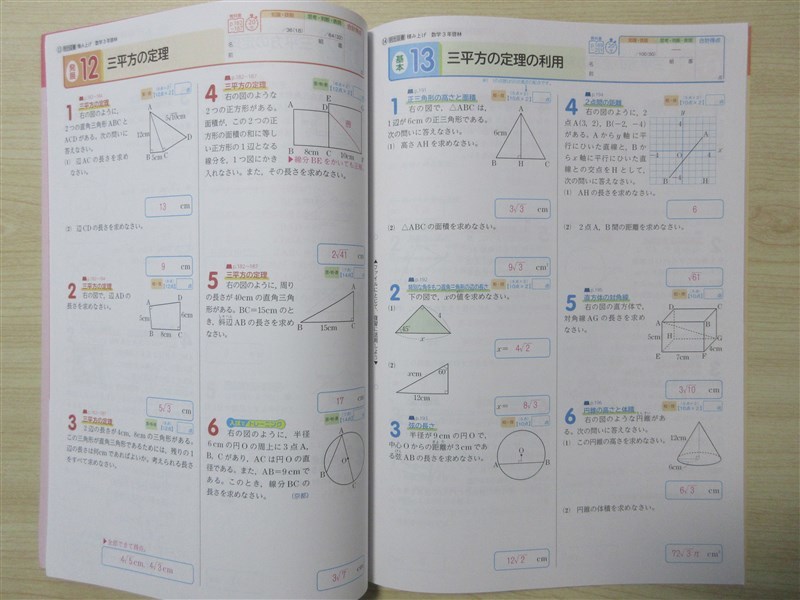 12 三平方の定理
名
前
1 三平方の定理
右の図のように,
2つの直角三角形ABCと
ACDがある。次の問いに
答えなさい。
(1) 辺ACの長さを求め
なさい。
A
12cm
D
B 5cm C
13 cm
(2) 辺CDの長さを求めなさい。
9 cm
2 三平方の定理
右の図で,辺ABの
長さを求めなさい。
A
D
5cm
6cm
B 8cm C
5√3 cm
3 三平方の定理
2辺の長さが4cm, 8cmの三角形がある。
この三角形が直角三角形であるためには,残りの1
辺の長さは何cmであればよいか。考えられる長さ
をすべて求めなさい。
4√5 cm, 4√3 cm
4 三平方の定理
右の図のような
2つの正方形がある。
面積が,この2つの正方
形の面積の和に等し
い正方形の1辺となる
線分を,1つ図にかき
入れなさい。また,その長さを求めなさい。
A
E
D
B 8cm C 10cm
2√41 cm
5 三平方の定理
右の図のように,周り
の長さが40cmの直角三角
形がある。BC=15cmのと
き,斜辺ABの長さを求め
なさい。
A
B 15cm C
17 cm
6
右の図のように,半径
6cmの円Oの周上に3点A,
B, Cがあり,ACは円Oの直
径である。また,AB=9cmで
ある。このとき,線分BCの
長さを求めなさい。
A
O
B
C
3√7 cm
基本 13 三平方の定理の利用
名
前
1 正三角形の高さと面積
右の図で,△ABCは,
1辺が6cmの正三角形である。
次の問いに答えなさい。
(1) 高さAHを求めなさい。
A
6cm
B H C
3√3 cm
(2) △ABCの面積を求めなさい。
9√3 cm²
2 特別な角をもつ直角三角形の辺の長さ
下の図で,xの値を求めなさい。
(1)
45°
4
x
x= 4√2
(2)
xcm
60°
12cm
x= 8√3
3 弦の長さ
半径が9cmの円Oで,
中心Oからの距離が3cmであ
る弦ABの長さを求めなさい。
O
A
B
12√2 cm
4 2点間の距離
右の図のように,2
点A(3, 2), B(-2, -4)
がある。Aからy軸に平
行にひいた直線と,Bか
らx軸に平行にひいた直
線との交点をHとして,
次の問いに答えなさい。
(1) AHの長さを求めなさい。
A
O
B
H
6
(2) 2点A, B間の距離を求めなさい。
√61
5 直方体の対角線
右の図の直方体で,
対角線AGの長さを求め
なさい。
D
C
A
B
5cm
H
G
4cm
E
7cm
F
3√10 cm
6 円錐の高さと体積
右の図のような円錐があ
る。次の問いに答えなさい。
(1) この円錐の高さを求めなさい。
12cm
6cm
6√3 cm
(2) 円錐の体積を求めなさい。
72√3 π cm³